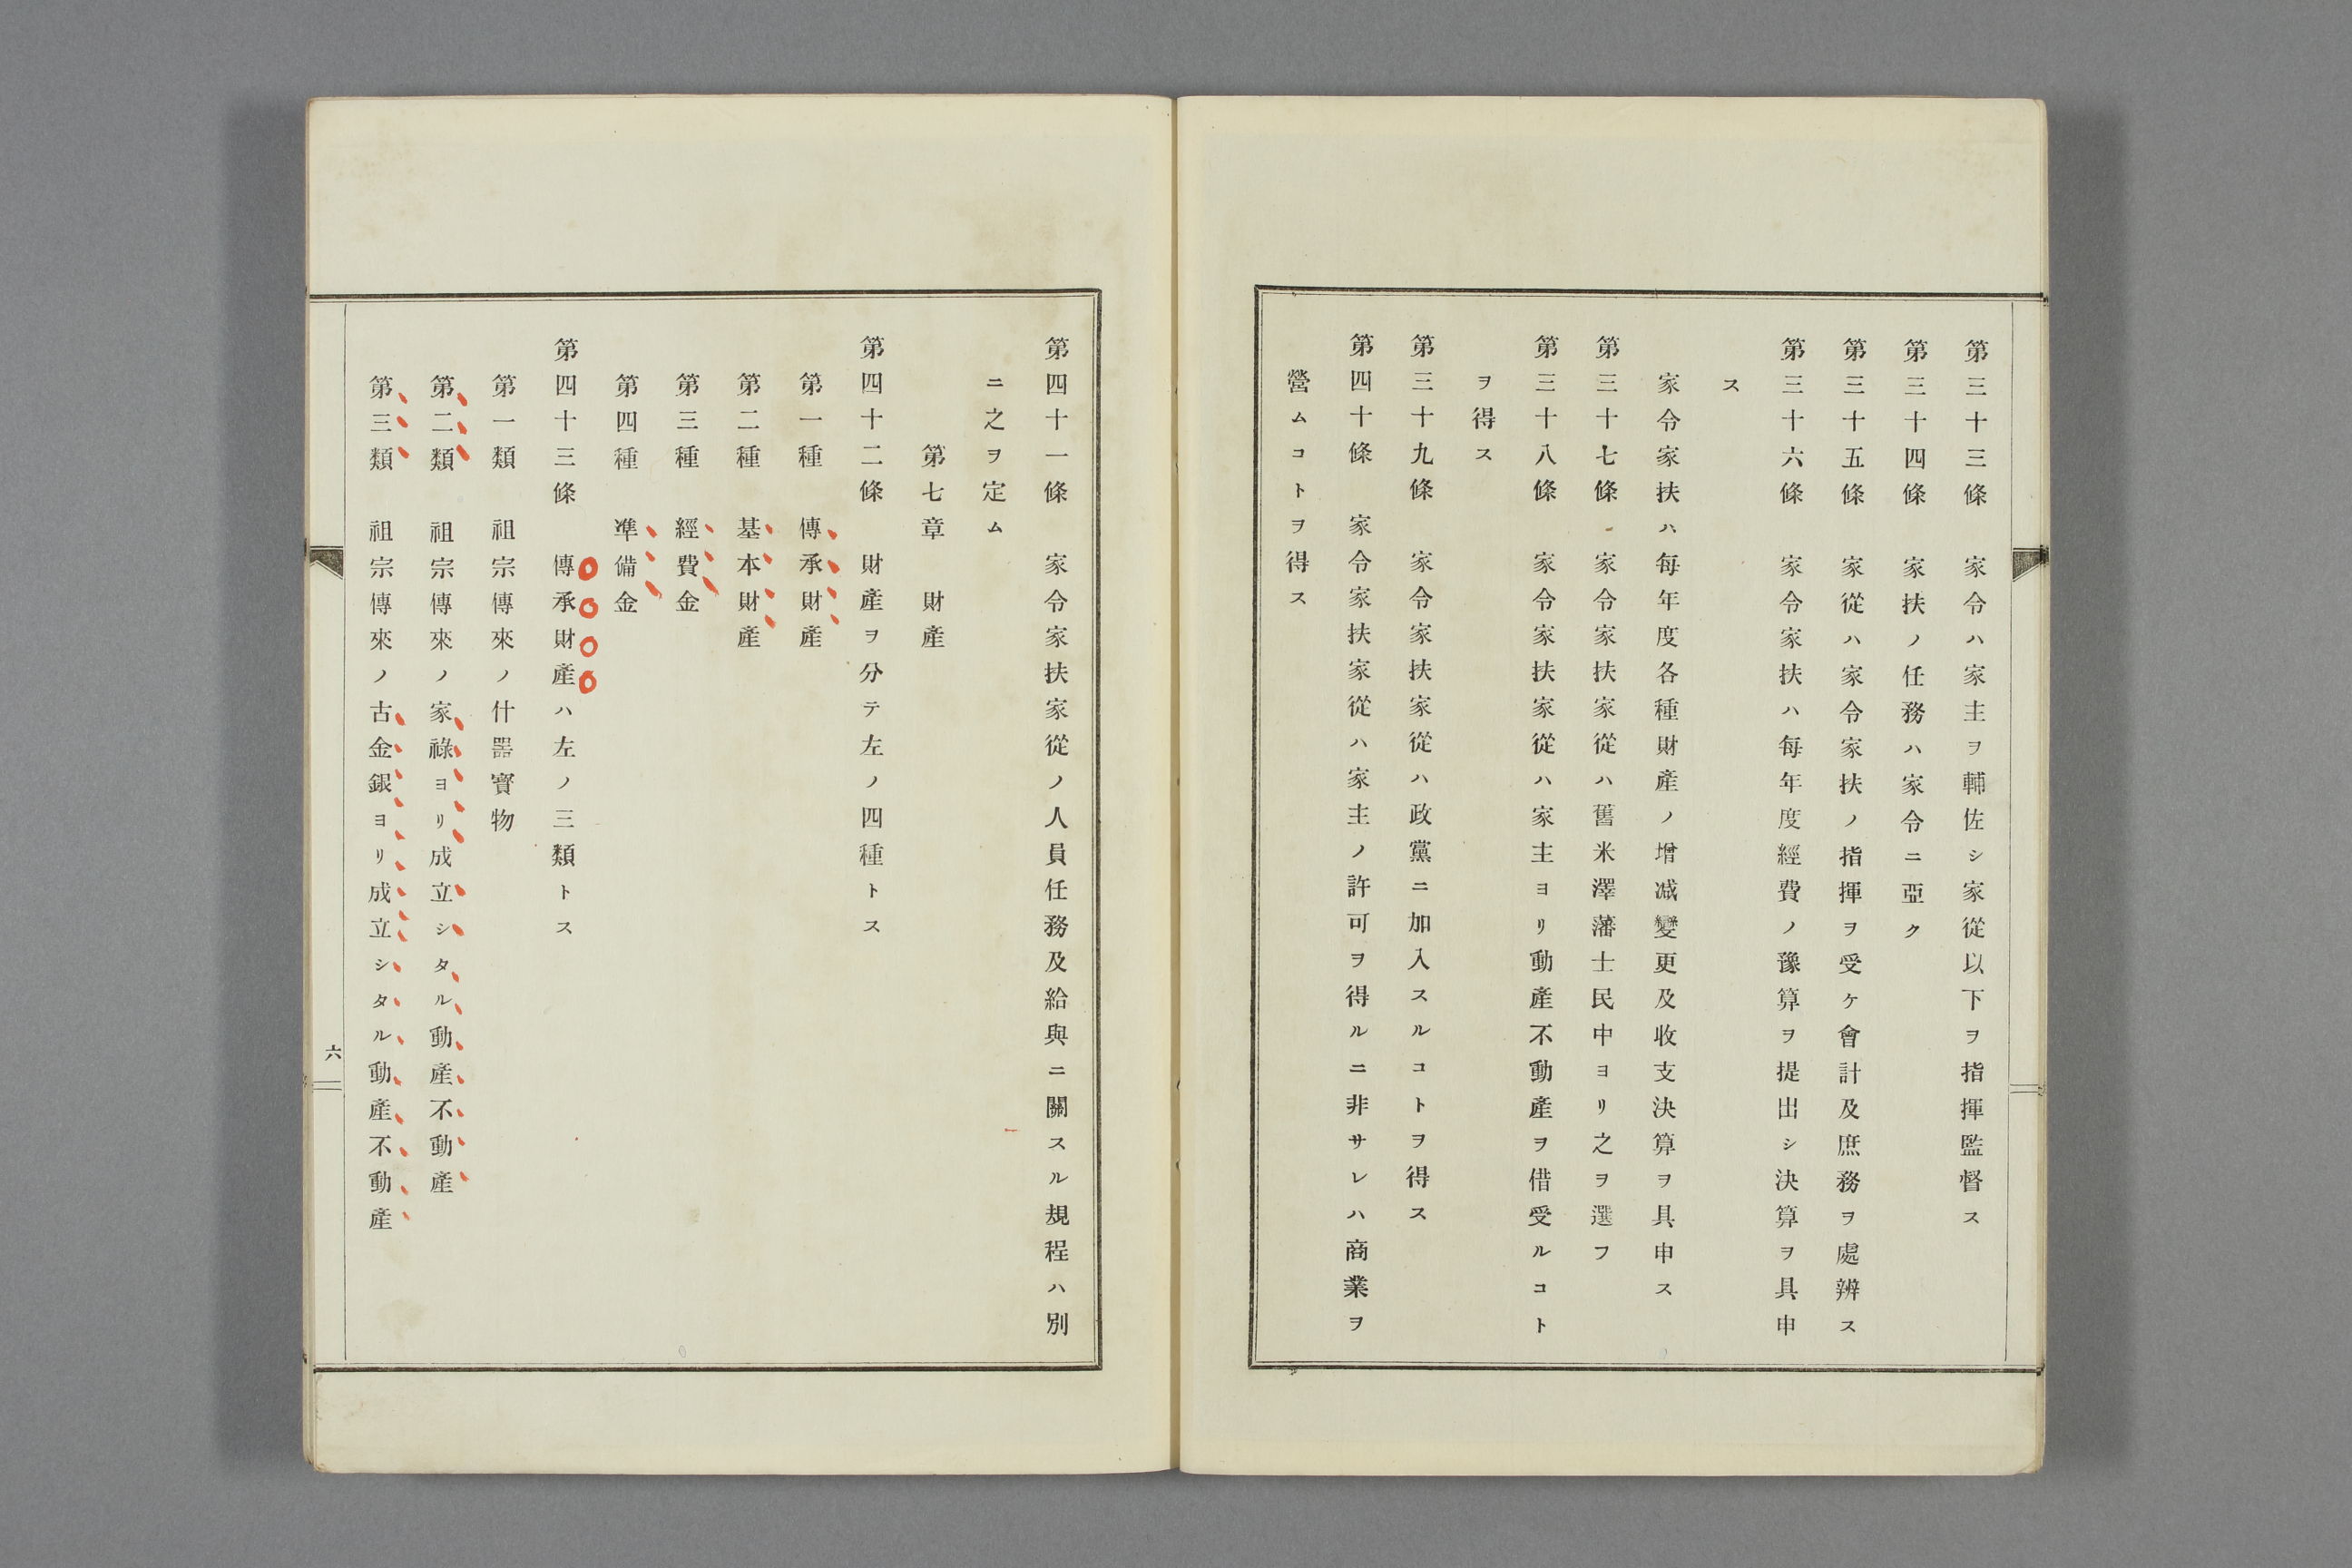 第三十三條　家令ハ家主ヲ輔佐シ家從以下ヲ指揮監督ス
第三十四條　家扶ノ任務ハ家令ニ亞ク
第三十五條　家從ハ家令家扶ノ指揮ヲ受ケ會計及庶務ヲ處辨ス
第三十六條　家令家扶ハ每年度經費ノ豫算ヲ提出シ決算ヲ具申
ス
家令家扶ハ每年度各種財產ノ增減變更及收支決算ヲ具申ス
第三十七條　家令家扶家從ハ舊米澤藩士民中ヨリ之ヲ選フ
第三十八條　家令家扶家從ハ家主ヨリ動產不動產ヲ借受ルコト
ヲ得ス
第三十九條　家令家扶家從ハ政黨ニ加入スルコトヲ得ス
第四十條　家令家扶家從ハ家主ノ許可ヲ得ルニ非サレハ商業ヲ
營ムコトヲ得ス
第四十一條　家令家扶家從ノ人員任務及給與ニ關スル規程ハ別
ニ之ヲ定ム
第七章　財產
第四十二條　財產ヲ分テ左ノ四種トス
第一種　傳承財產
第二種　基本財產
第三種　經費金
第四種　準備金
第四十三條　傳承財產ハ左ノ三類トス
第一類　祖宗傳來ノ什器寶物
第二類　祖宗傳來ノ家祿ヨリ成立シタル動產不動產
第三類　祖宗傳來ノ古金銀ヨリ成立シタル動產不動產
六